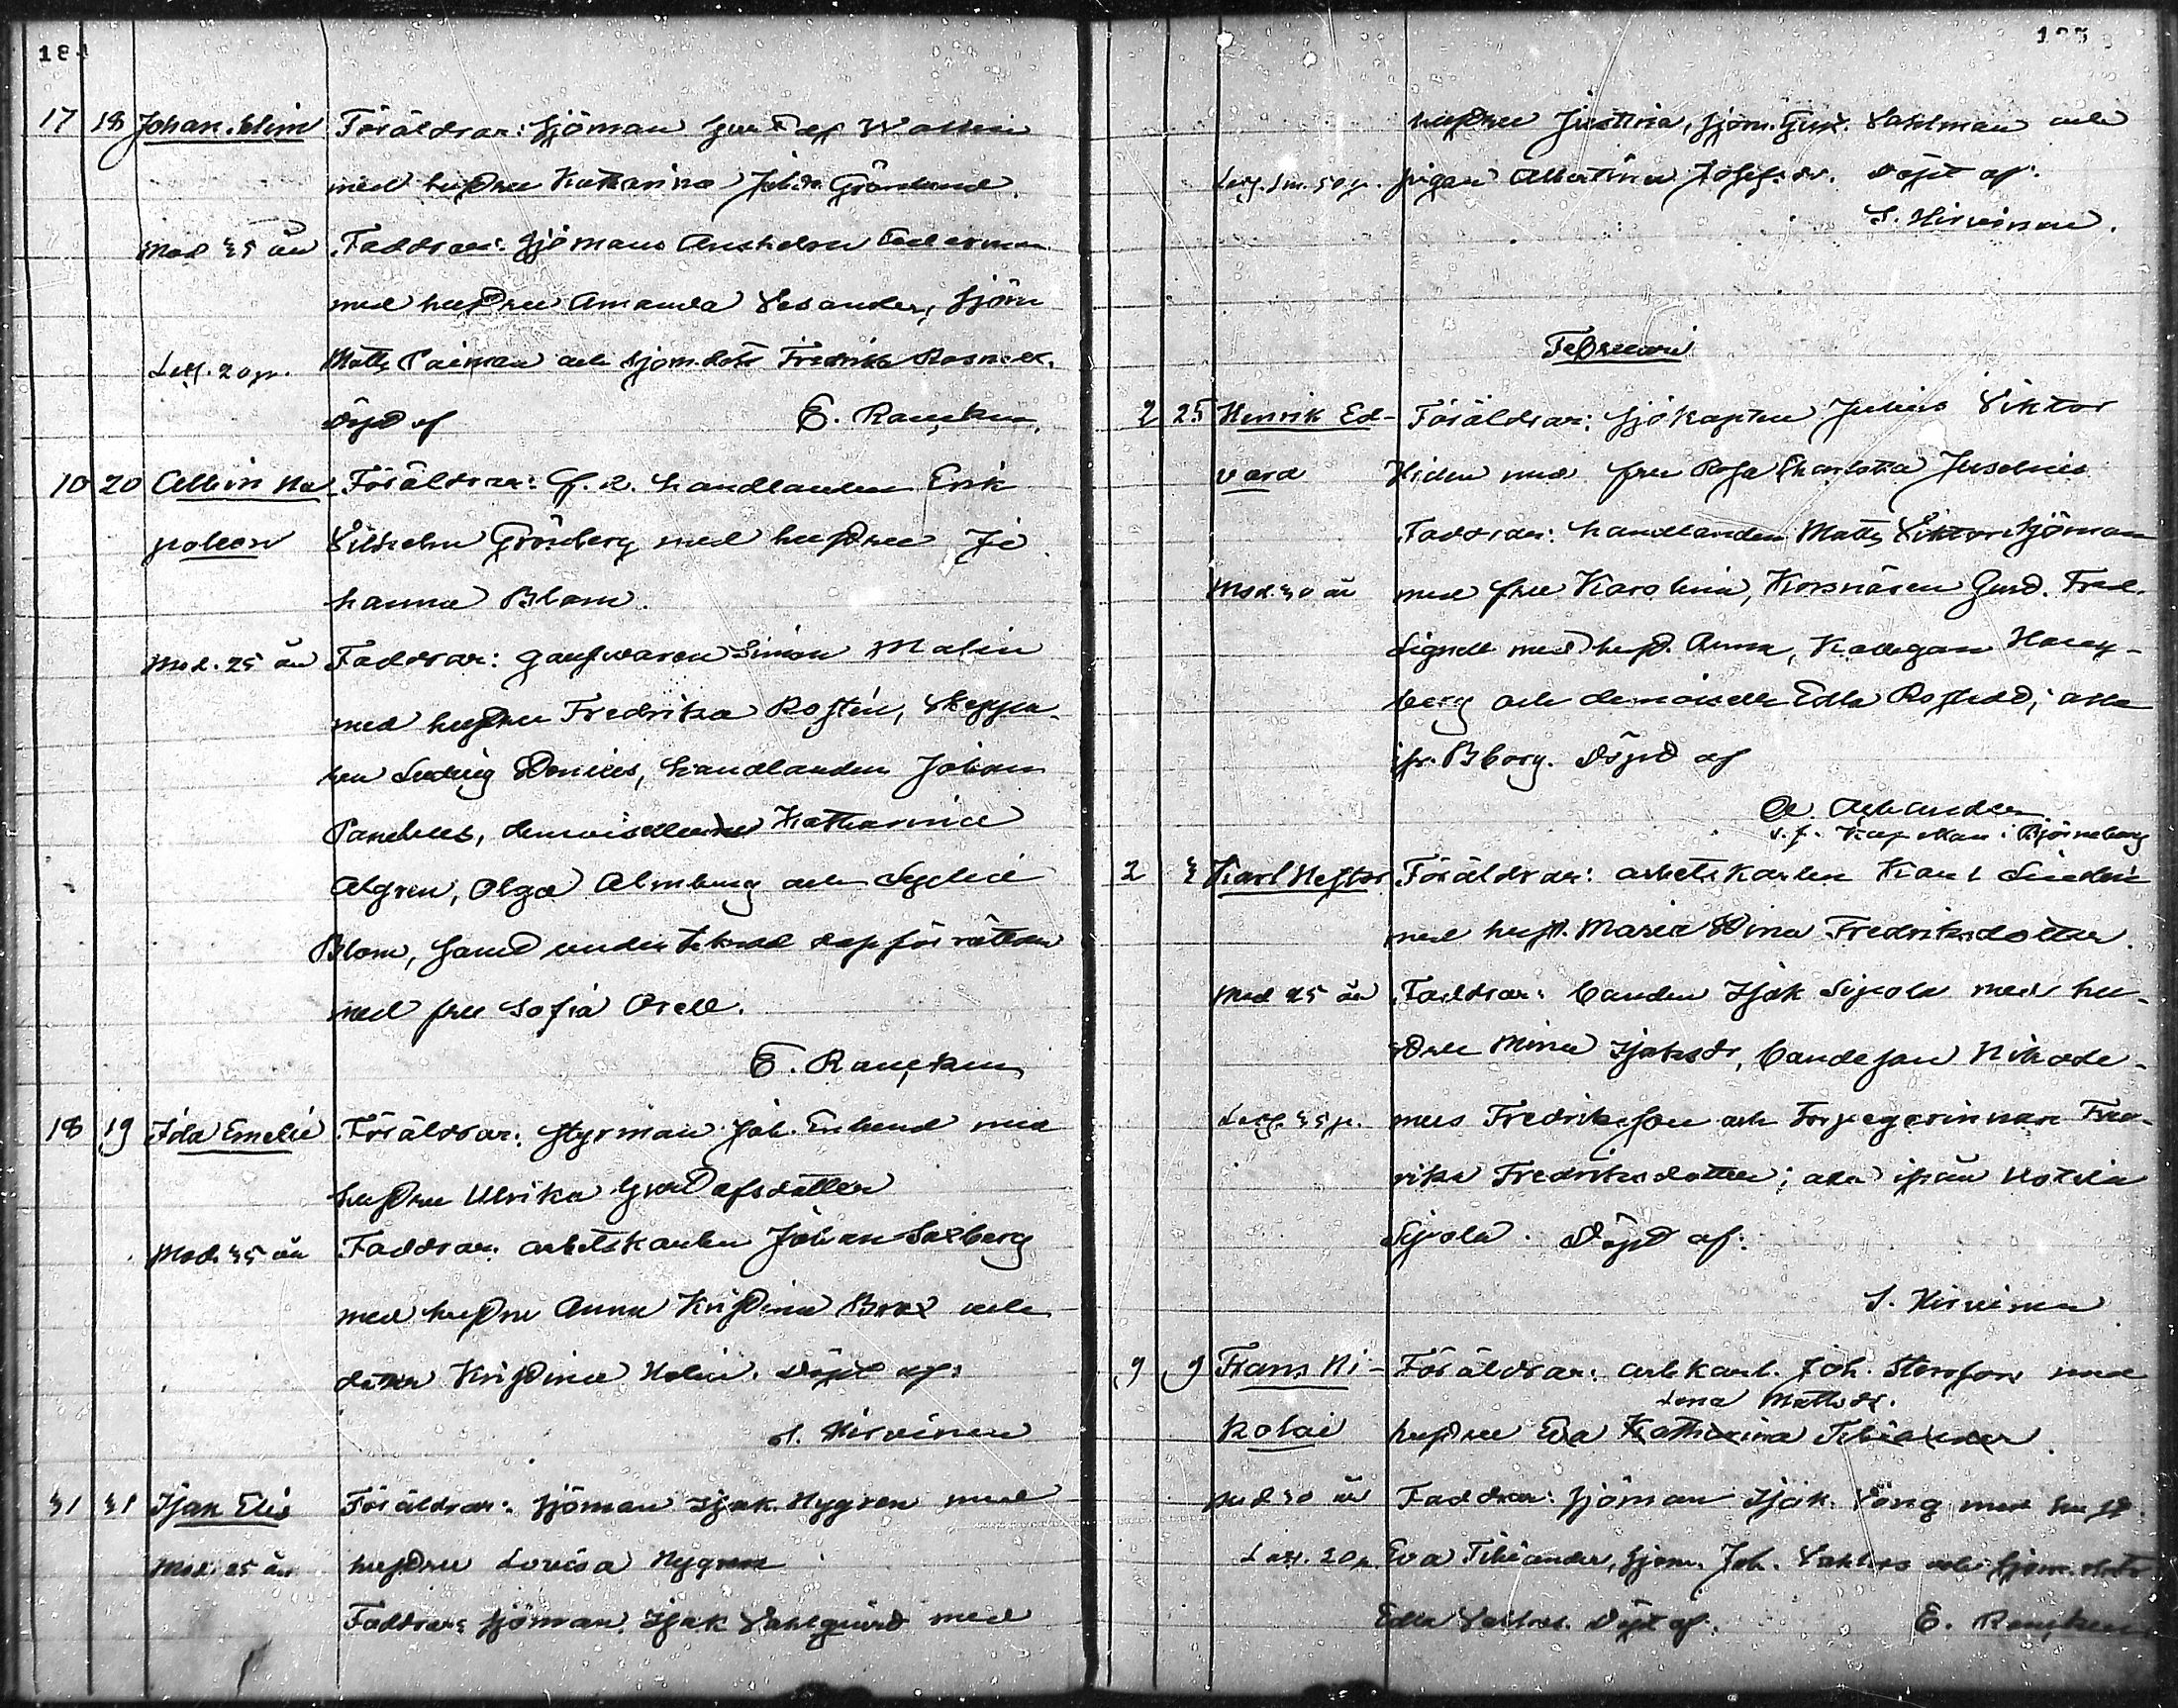 184
17 18 Johan Selim Föräldrar: sjöman Gustaf Wallin
med hustru Katharina Joh:dr Grönlund.
Mod. 35 år Faddrar: Sjömans Anshelm Cederman
med hustru Amanda Lesander, sjöm
Leg. 20 p. Matts Paiman och sjöm.dotr Fredrika Rosnell.
döpt af E. Rancken.
10 20 Albin Na- Föräldrar: f. d. handlanden Erik
poleon Vilhelm Grönberg med hustru Jo
hanna Blom.
Mod. 25 år Faddrar: garfvaren Simon Malin
med hustru Fredrika Rostén, skeppa-
ren Ludvig Denius, handlanden Johan
Panelius, demoisellerna Katharina
Algren, Olga Almberg och Sylvia
Blom, samt undertecknad dopförrättare
med fru Sofia Orell.
E. Rancken
18 19 Ida Emelie Föräldrar: styrman Joh. Enlund med
hustru Ulrika Gustafsdotter
Mod. 35 år Faddrar: arbetskarlen Johan Saxberg
med hustru Anna Kristina Brax och
Kristina Holm. Döpt af:
S. Hirvinen
31 31 Isak Elis Föräldrar: sjöman Isak Nygren med
Mod. 25 år hustru Lovisa Nygren
Faddrar: sjöman Isak Vahlqvist med
185
hustru Justina, sjöm. Gust. Dahlman och
Leg. 50 p. pigan Albertina Josefsdr. Döpt af:
S. Hirvinen.
Februari
2 25 Henrik Ed- Föräldrar: sjökapten Julius Viktor
vard Hiden med fru Rosa Charlotta Juselius
Faddrar: handlanden Matts Viktor Sjöman
Mod. 30 år med fru Karolina, Korsnären Gust. Fred.
Signell med hust. Anna, Kollegan
berg och demoiselle Edla Rostedt; alla
ifr. Bborg. Döpt af
v. f. Kap.man i Björneborg
2 3 Karl Nestor Föräldrar: arbetskarlen Karl Lindén
med hust. Maria Stina Fredriksdotter.
Mod 25 år Faddrar: bonden Isak Sipola med hu-
stru Mina Isaksdr, bondeson Nikode-
Leg. 35 p. mus Fredriksson och Torpegerinnan Fred-
rika Fredriksdotter; alla ifrån Kotela
Sipola. Döpt af:
S. Hirvinen
9 9 Frans Ni- Föräldrar: arb.karl. Joh. Storfors med
Lena Mattsdr.
kolai hustru Eva Katharina Tiliander.
Mod 30 år Faddrar: sjöman Isak Läng med hust.
Leg. 20 p. Eva Tiliander, sjöm. Joh. Dahlros och sjöm.dotr
Edla Döpt af. E. Rancken